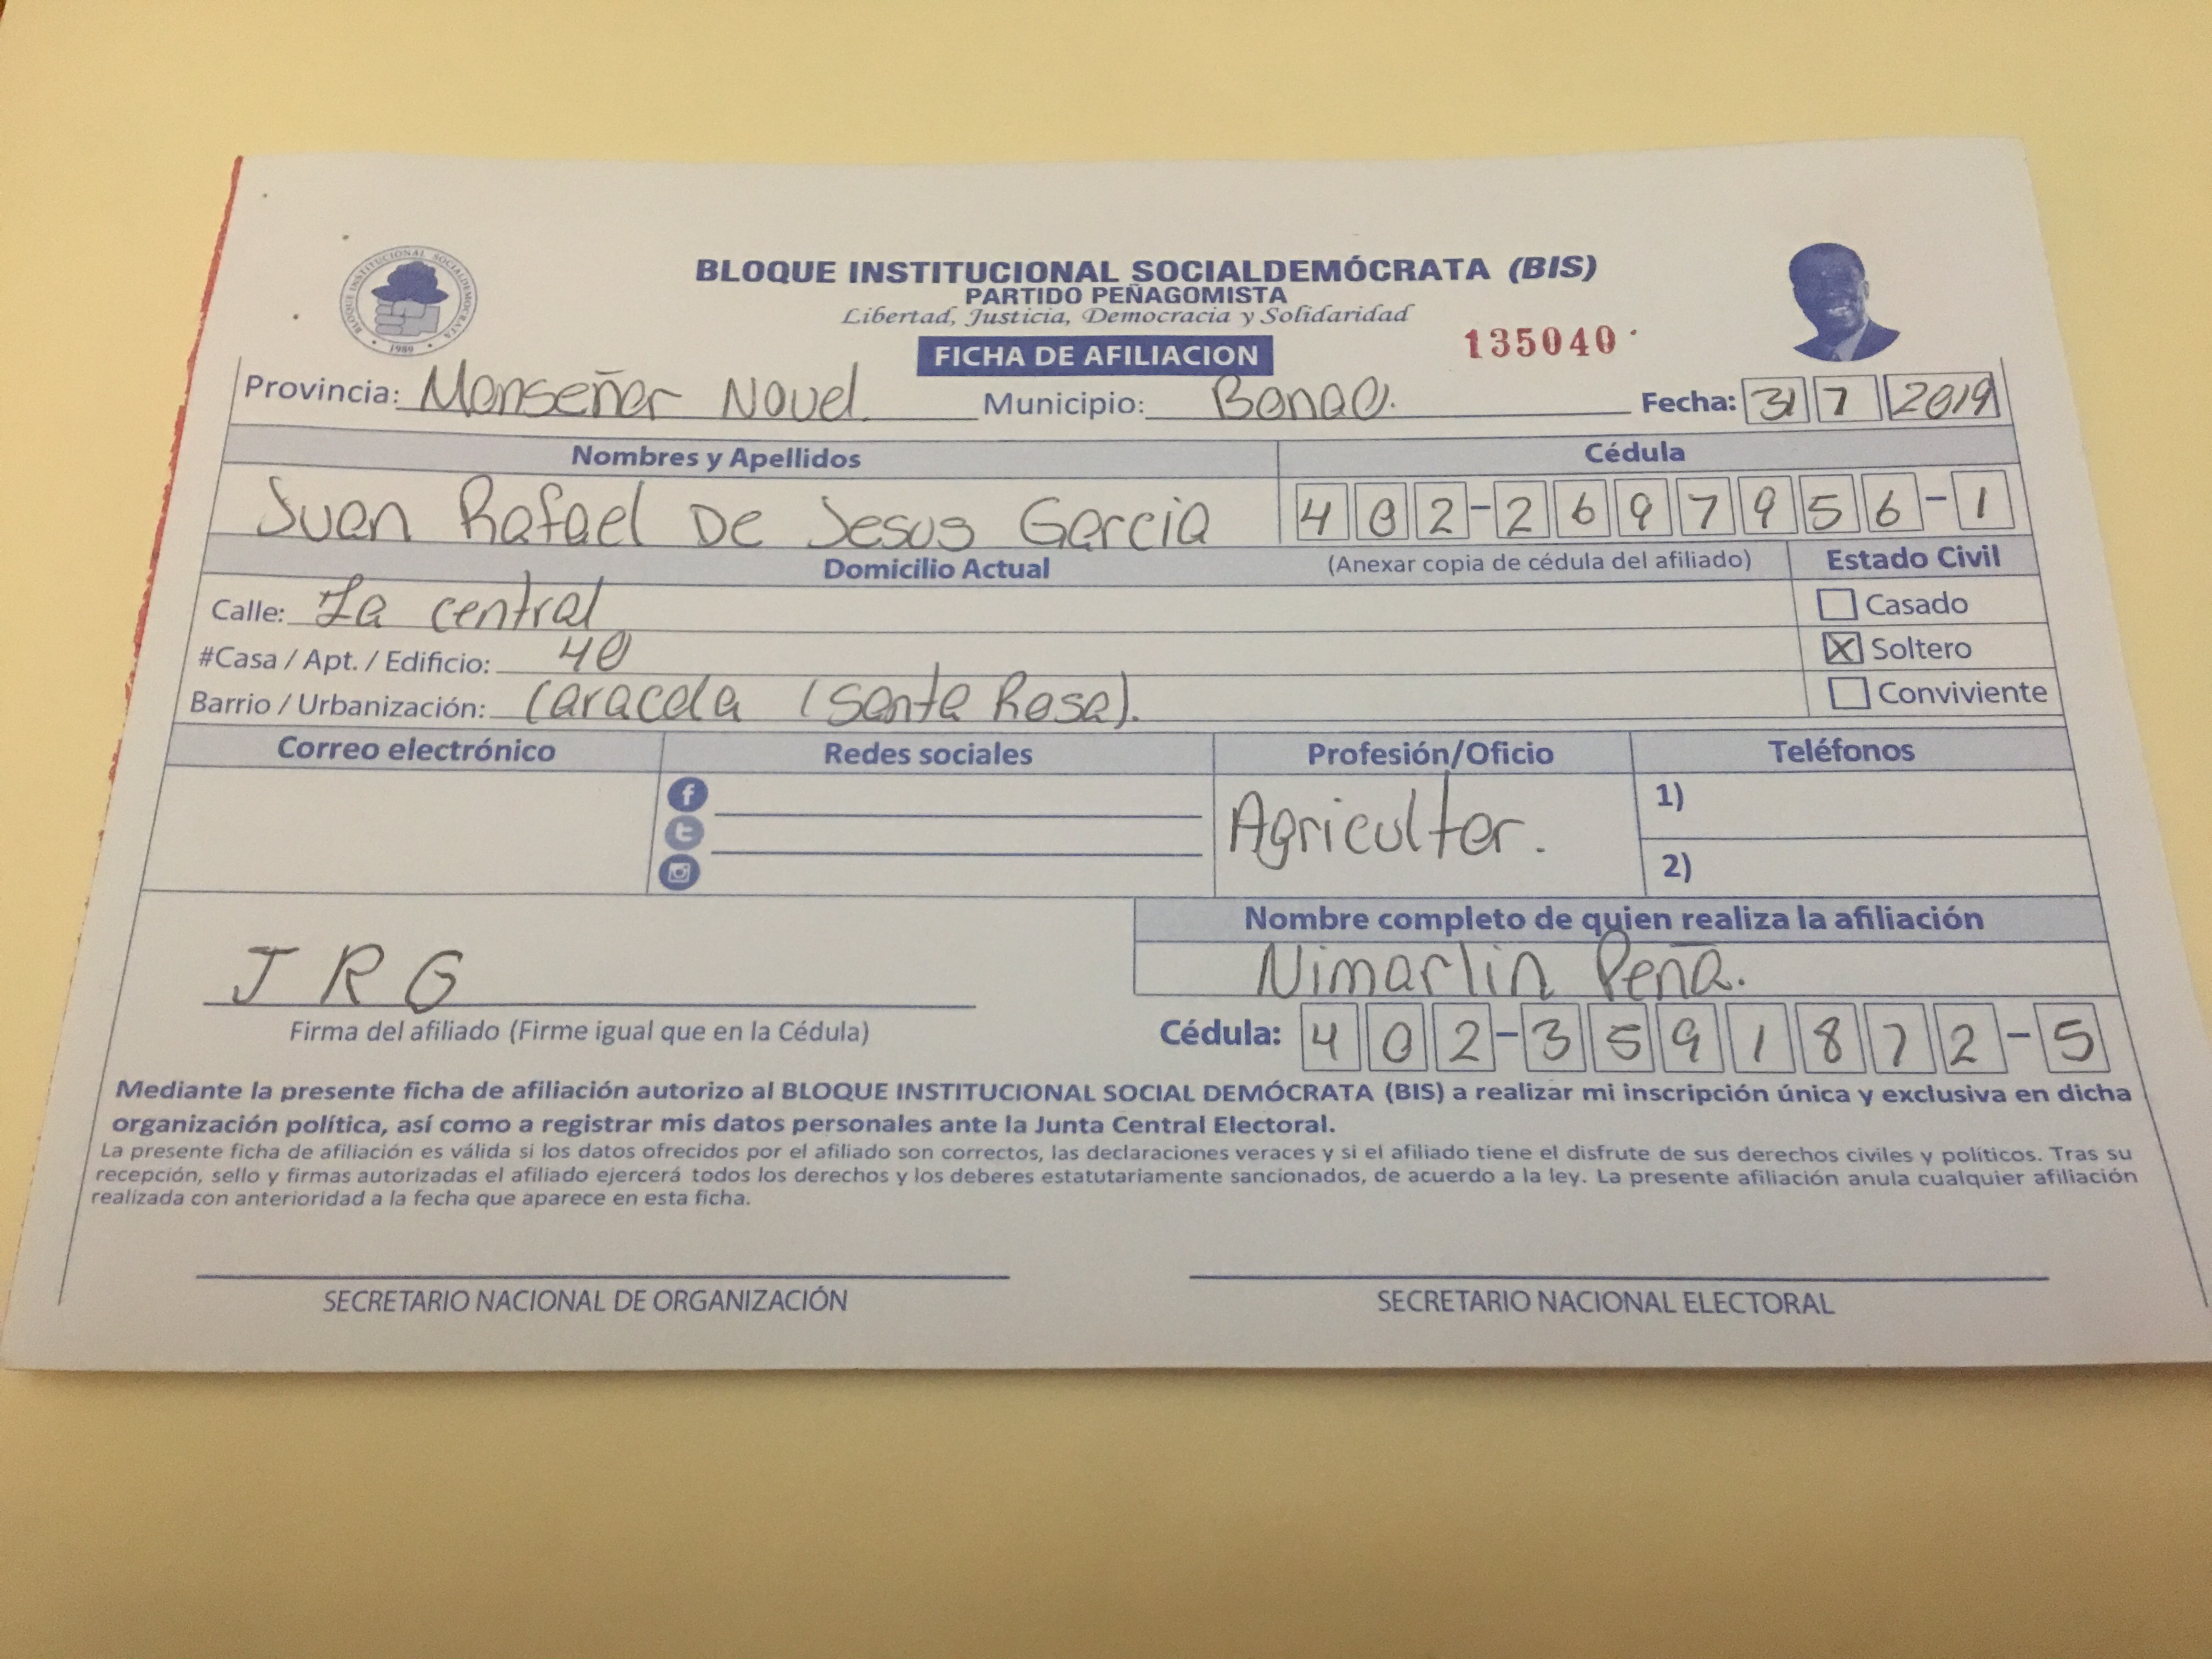 BLOQUE INSTITUCIONAL SOCIALDEMOCRATA
1989
BLOQUE INSTITUCIONAL SOCIALDEMÓCRATA (BIS)
PARTIDO PEÑAGOMISTA
Libertad, Justicia, Democracia y Solidaridad
FICHA DE AFILIACION 135040
Provincia: Monseñor Nouel. Municipio: Bonao. Fecha: 31 7 2019
Nombres y Apellidos Cédula
Juan Rafael De Jesus Garcia 402-2697956-1
Domicilio Actual (Anexar copia de cédula del afiliado) Estado Civil
Calle: La central Casado
#Casa / Apt. / Edificio: 40 X Soltero
Barrio / Urbanización: Caracola (Santa Rosa). Conviviente
Correo electrónico Redes sociales Profesión/Oficio Teléfonos
Agricultor. 1)
2)
Nombre completo de quien realiza la afiliación
J R G Nimarlin Peña.
Firma del afiliado (Firme igual que en la Cédula) Cédula: 402-3591872-5
Mediante la presente ficha de afiliación autorizo al BLOQUE INSTITUCIONAL SOCIAL DEMÓCRATA (BIS) a realizar mi inscripción única y exclusiva en dicha
organización política, así como a registrar mis datos personales ante la Junta Central Electoral.
La presente ficha de afiliación es válida si los datos ofrecidos por el afiliado son correctos, las declaraciones veraces y si el afiliado tiene el disfrute de sus derechos civiles y políticos. Tras su
recepción, sello y firmas autorizadas el afiliado ejercerá todos los derechos y los deberes estatutariamente sancionados, de acuerdo a la ley. La presente afiliación anula cualquier afiliación
realizada con anterioridad a la fecha que aparece en esta ficha.
SECRETARIO NACIONAL DE ORGANIZACIÓN SECRETARIO NACIONAL ELECTORAL